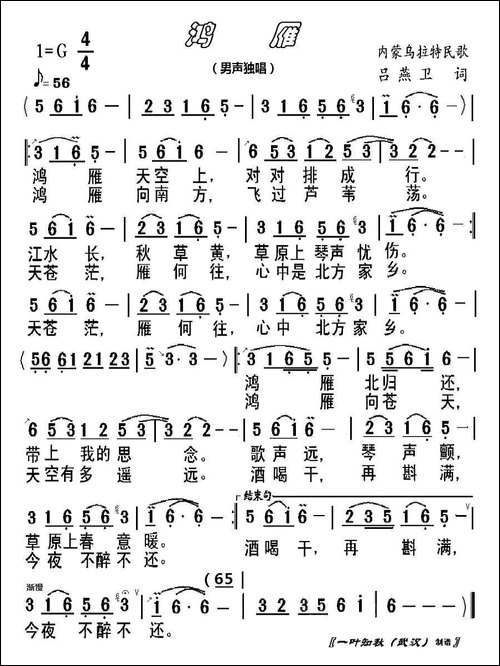 鸿 雁
1=G 4/4
(男声独唱)
内蒙乌拉特民歌
♪=56
吕燕卫 词
(5 6 1 6 - | 2 3 1 6 5 - | 3 1 6 5 6 3 | 1 6 · 6 -) |
3 1 6 5 - | 5 6 1 6 - | 6 5 3 5 1 2 5 3 | 3 2 2 - |
鸿 雁 天空上, 对 对 排 成 行。
鸿 雁 向南方, 飞过芦 苇 荡。
5 6 1 6 - | 2 3 1 6 5 - | 3 1 6 5 6 3 | 1 6 · 6 - :
江水 长, 秋 草 黄, 草原上 琴声 忧 伤。
天苍 茫, 雁 何 往, 心中是 北方 家 乡。
5 6 1 6 - | 2 3 1 6 5 - | 3 1 6 5 6 3 | 1 6 · 6 - |
天苍 茫, 雁 何 往, 心中 北方 家 乡。
(56 61 2123 2123 | 5 3 · 3 -) : 3 1 6 5 5 - | 5 5 6 1 6 - |
鸿 雁 北归 还,
鸿 雁 向苍 天,
6 5 3 5 1 2 5 3 | 3 2 2 - | 5 6 1 6 - | 2 3 1 6 5 - |
带上 我的 思 念。 歌声 远, 琴 声 颤,
天空有多 遥 远。 酒喝 干, 再 斟 满,
结束句
3 1 6 5 6 3 | 1 6 · 6 - : 5 6 1 6 - | 2 3 5 3 5 - |
草原上春 意暖。
酒喝 干, 再 斟 满,
今夜 不醉不 还。
(65
渐慢
3 1 6 5 6 3 | 1 6 · 6 - | 6 - - - | 3 1 2 3 5 3 | 6 - - -) ‖
今夜 不醉不 还。
《一叶知秋(武汉)制谱》